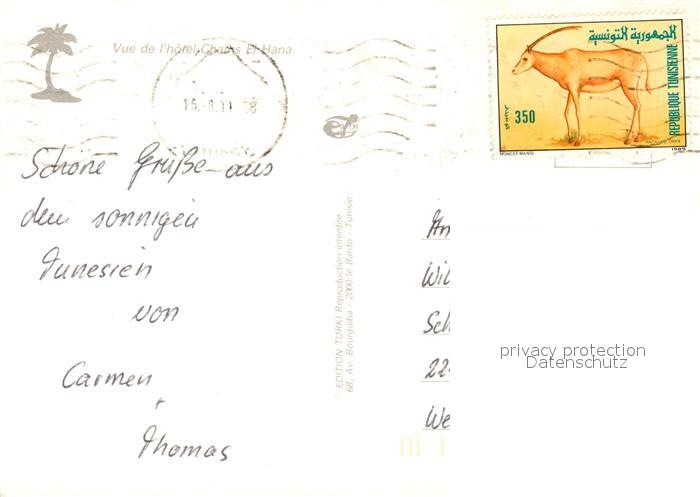 Vue de l'hôtel Chams El Hana
الجمهورية التونسية
REPUBLIQUE TUNISIENNE
350
MONCEF MANSI
1989
Schöne Grüße aus
dem sonnigen
Tunesien
von
Carmen
+
Thomas
© EDITION TURKI Reproduction interdite
68, Av. Bourguiba - 2000 le Bardo - Tunisie
An
Wil
Sch
22
We
privacy protection
Datenschutz